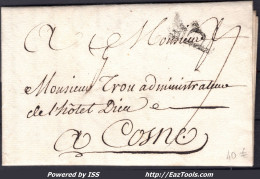 A Monsieur
Monsieur Trou administrateur
de l'hôtel Dieu
a Cosne
40 €
Powered by ISS
http://EazTools.com